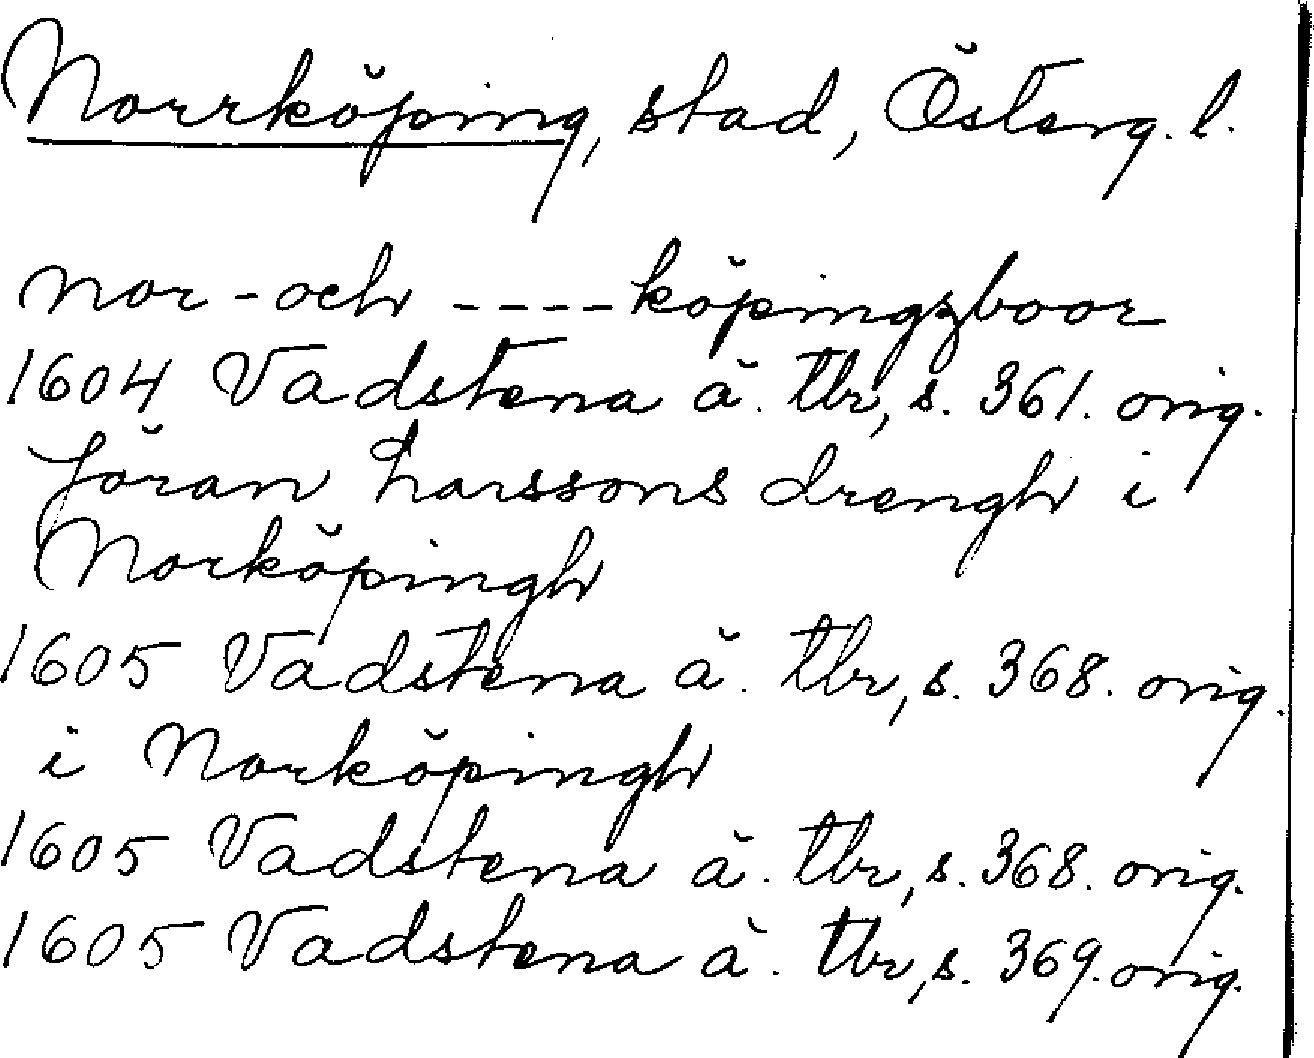 Norrköping, stad, Österg. l.
Nor - och ---- köpingzboor
1604 Vadstena ä. tbr, s. 361. orig.
Jöran Larssons drengh i
Norköpingh
1605 Vadstena ä. tbr, s. 368. orig.
i Norköpingh
1605 Vadstena ä. tbr, s. 368. orig.
1605 Vadstena ä. tbr, s. 369. orig.